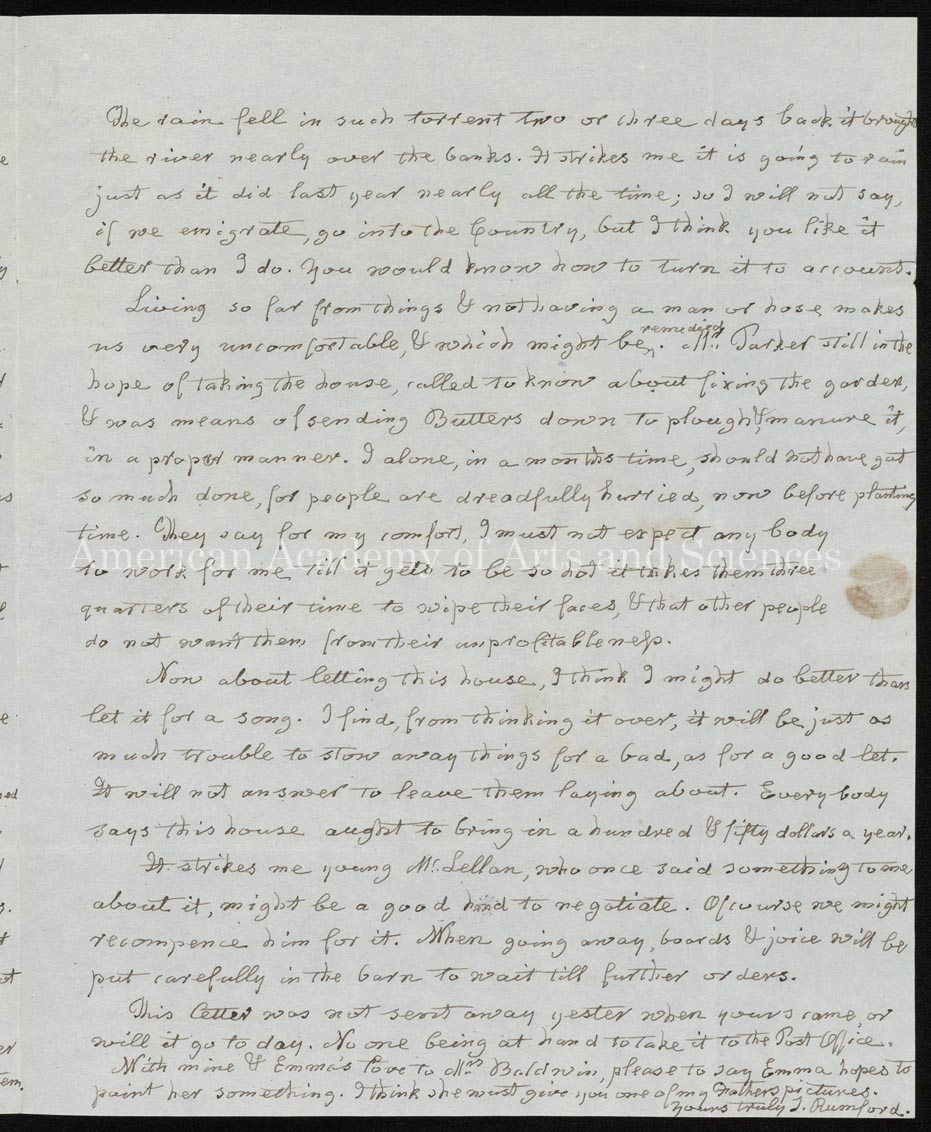 The rain fell in such torrent two or three days back it brought
the river nearly over the banks. It strikes me it is going to rain
just as it did last year nearly all the time; so I will not say,
if we emigrate, go into the Country, but I think you like it
better than I do. You would know how to turn it to account.
Living so far from things & not having a man or hose makes
us very uncomfortable, & which might be remedied. Mr. Parker still in the
hope of taking the house, called to know about fixing the garden,
& was means of sending Butters down to plough & manure it,
in a proper manner. I alone, in a months time, should not have got
so much done, for people are dreadfully hurried, now before planting
time. They say for my comfort, I must not expect any body
to work for me till it gets to be so hot it takes them three
quarters of their time to wipe their faces, & that other people
do not want them from their unprofitableness.
Now about letting this house, I think I might do better than
let it for a song. I find, from thinking it over, it will be just as
much trouble to stow away things for a bad, as for a good let.
It will not answer to leave them laying about. Every body
says this house aught to bring in a hundred & fifty dollars a year.
It strikes me young Mc. Lellan, who once said something to me
about it, might be a good hand to negotiate. Of course we might
recompence him for it. When going away, boards & joice will be
put carefully in the barn to wait till further orders.
This letter was not sent away yester when yours came, or
will it go to day. No one being at hand to take it to the Post Office.
With mine & Emma's love to Mrs Baldwin, please to say Emma hopes to
paint her something. I think she must give you one of my Fathers pictures.
Yours truly S. Rumford.
American Academy of Arts and Sciences